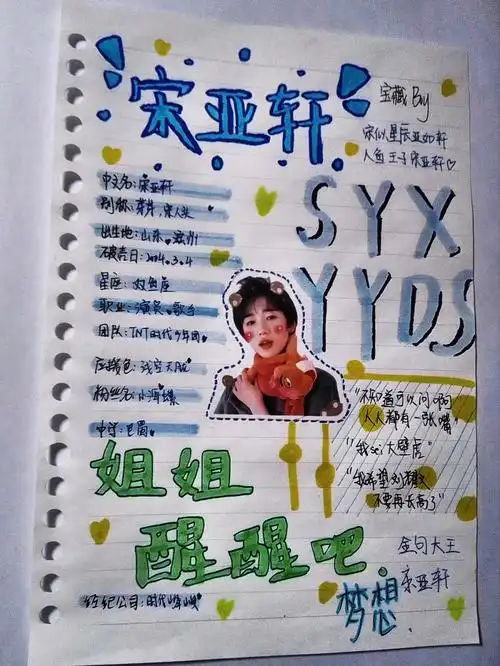 宋亚轩
宝藏 Boy
宋似星辰亚如轩
人鱼王子宋亚轩♡
中文名:宋亚轩
出生地:山东,滨州
破壳日:2004.3.4
星座:双鱼座
职业:演员,歌手
团队:TNT时代少年团
应援色:浅空天蓝
粉丝名:小海螺
SYX
YYDS
"不知道可以问啊
人人都有一张嘴"
"我sei大壁虎"
"我希望刘耀文
不要再长高了"
金句大王
宋亚轩
姐姐
醒醒吧
梦想
经纪公司:时代峰峻